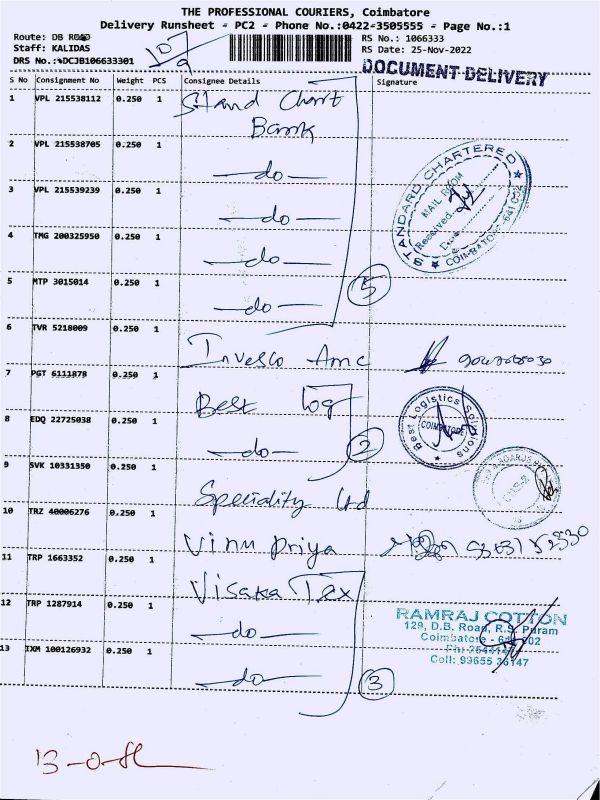 THE PROFESSIONAL COURIERS, Coimbatore
Delivery Runsheet - PC2 - Phone No.:0422-3505555 - Page No.:1
Route: DB ROAD
Staff: KALIDAS
DRS No.:%DCJB106633301
107/9
RS No.: 1066333
RS Date: 25-Nov-2022
DOCUMENT DELIVERY
S No Consignment No Weight PCS Consignee Details Signature
1 VPL 215538112 0.250 1 Stand Chart
Bank
2 VPL 215538705 0.250 1 —do—
3 VPL 215539239 0.250 1 —do—
4 TMG 200325950 0.250 1 —do—
5 MTP 3015014 0.250 1 —do— 5
STANDARD CHARTERED
MAIL ROOM
Received
COIMBATORE-641 002
6 TVR 5218009 0.250 1 Invesco Amc
7 PGT 6111878 0.250 1 Best Log
8 EDQ 22725038 0.250 1 —do— 2
Best Logistics Solutions
COIMBATORE
9 SVK 10331350 0.250 1 Speciality Ltd
10 TRZ 40006276 0.250 1 Vinu Priya
11 TRP 1663352 0.250 1 Visaka Tex
12 TRP 1287914 0.250 1 —do—
13 IXM 100126932 0.250 1 —do— 3
RAMRAJ COTTON
129, D.B. Road, R.S. Puram
Coimbatore - 641 002
Cell: 93655 36147